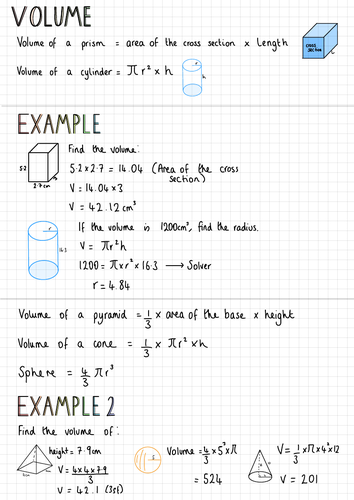 VOLUME
Volume of a prism = area of the cross section x Length
CROSS SECTION
Volume of a cylinder = πr² x h
r
h
EXAMPLE
Find the volume:
5.2
2.7cm
5.2 x 2.7 = 14.04 (Area of the cross section)
V = 14.04 x 3
V = 42.12 cm³
r
16.3
If the volume is 1200cm³, find the radius.
V = πr²h
1200 = π x r² x 16.3 → Solver
r = 4.84
Volume of a pyramid = 1/3 x area of the base x height
Volume of a cone = 1/3 x πr² x h
Sphere = 4/3 πr³
EXAMPLE 2
Find the volume of:
height = 7.9cm
V = 4x4x7.9/3
V = 42.1 (3sf)
5
Volume = 4/3 x 5³ x π
= 524
V = 1/3 x π x 4² x 12
V = 201